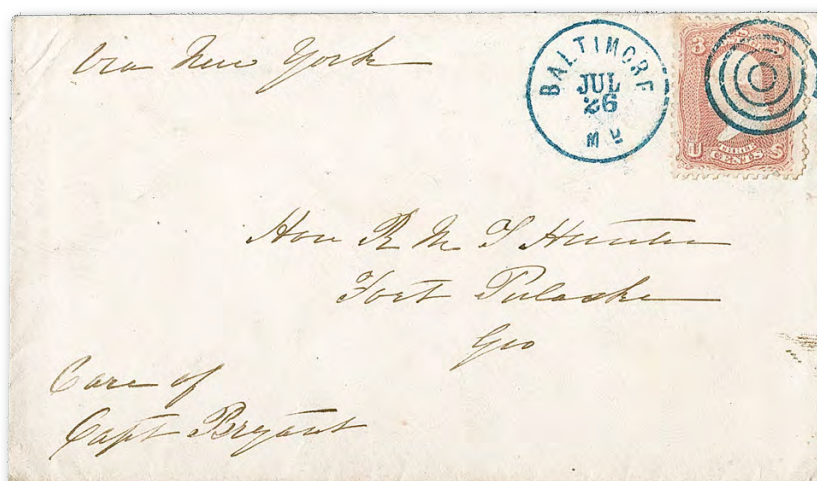 Via New York
BALTIMORE
JUL
26
Md
3 3
U THREE CENTS S
Hon R M T Hunter
Fort Pulaski
Geo
Care of
Capt Bryant